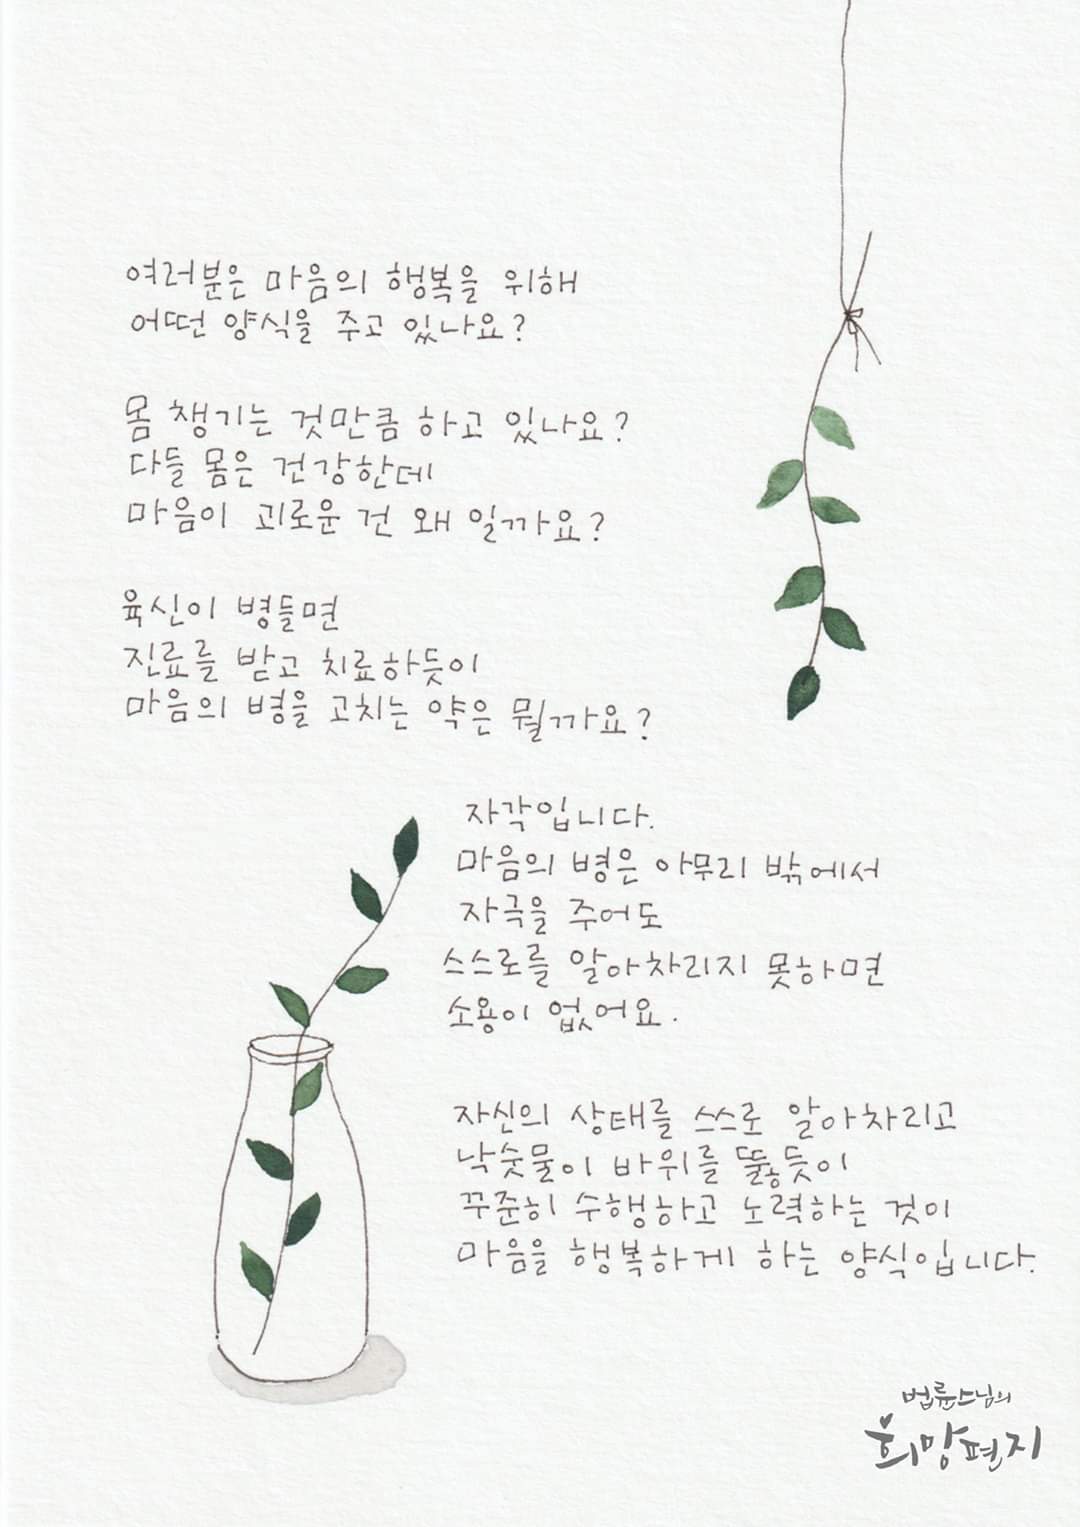 여러분은 마음의 행복을 위해
어떤 양식을 주고 있나요?
몸 챙기는 것만큼 하고 있나요?
다들 몸은 건강한데
마음이 괴로운 건 왜 일까요?
육신이 병들면
진료를 받고 치료하듯이
마음의 병을 고치는 약은 뭘까요?
자각입니다.
마음의 병은 아무리 밖에서
자극을 주어도
스스로를 알아차리지 못하면
소용이 없어요.
자신의 상태를 스스로 알아차리고
낙숫물이 바위를 뚫듯이
꾸준히 수행하고 노력하는 것이
마음을 행복하게 하는 양식입니다.
법륜스님의
희망편지